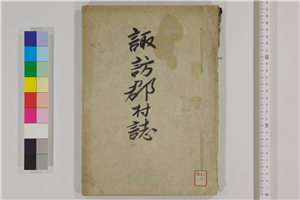 諏訪郡村誌